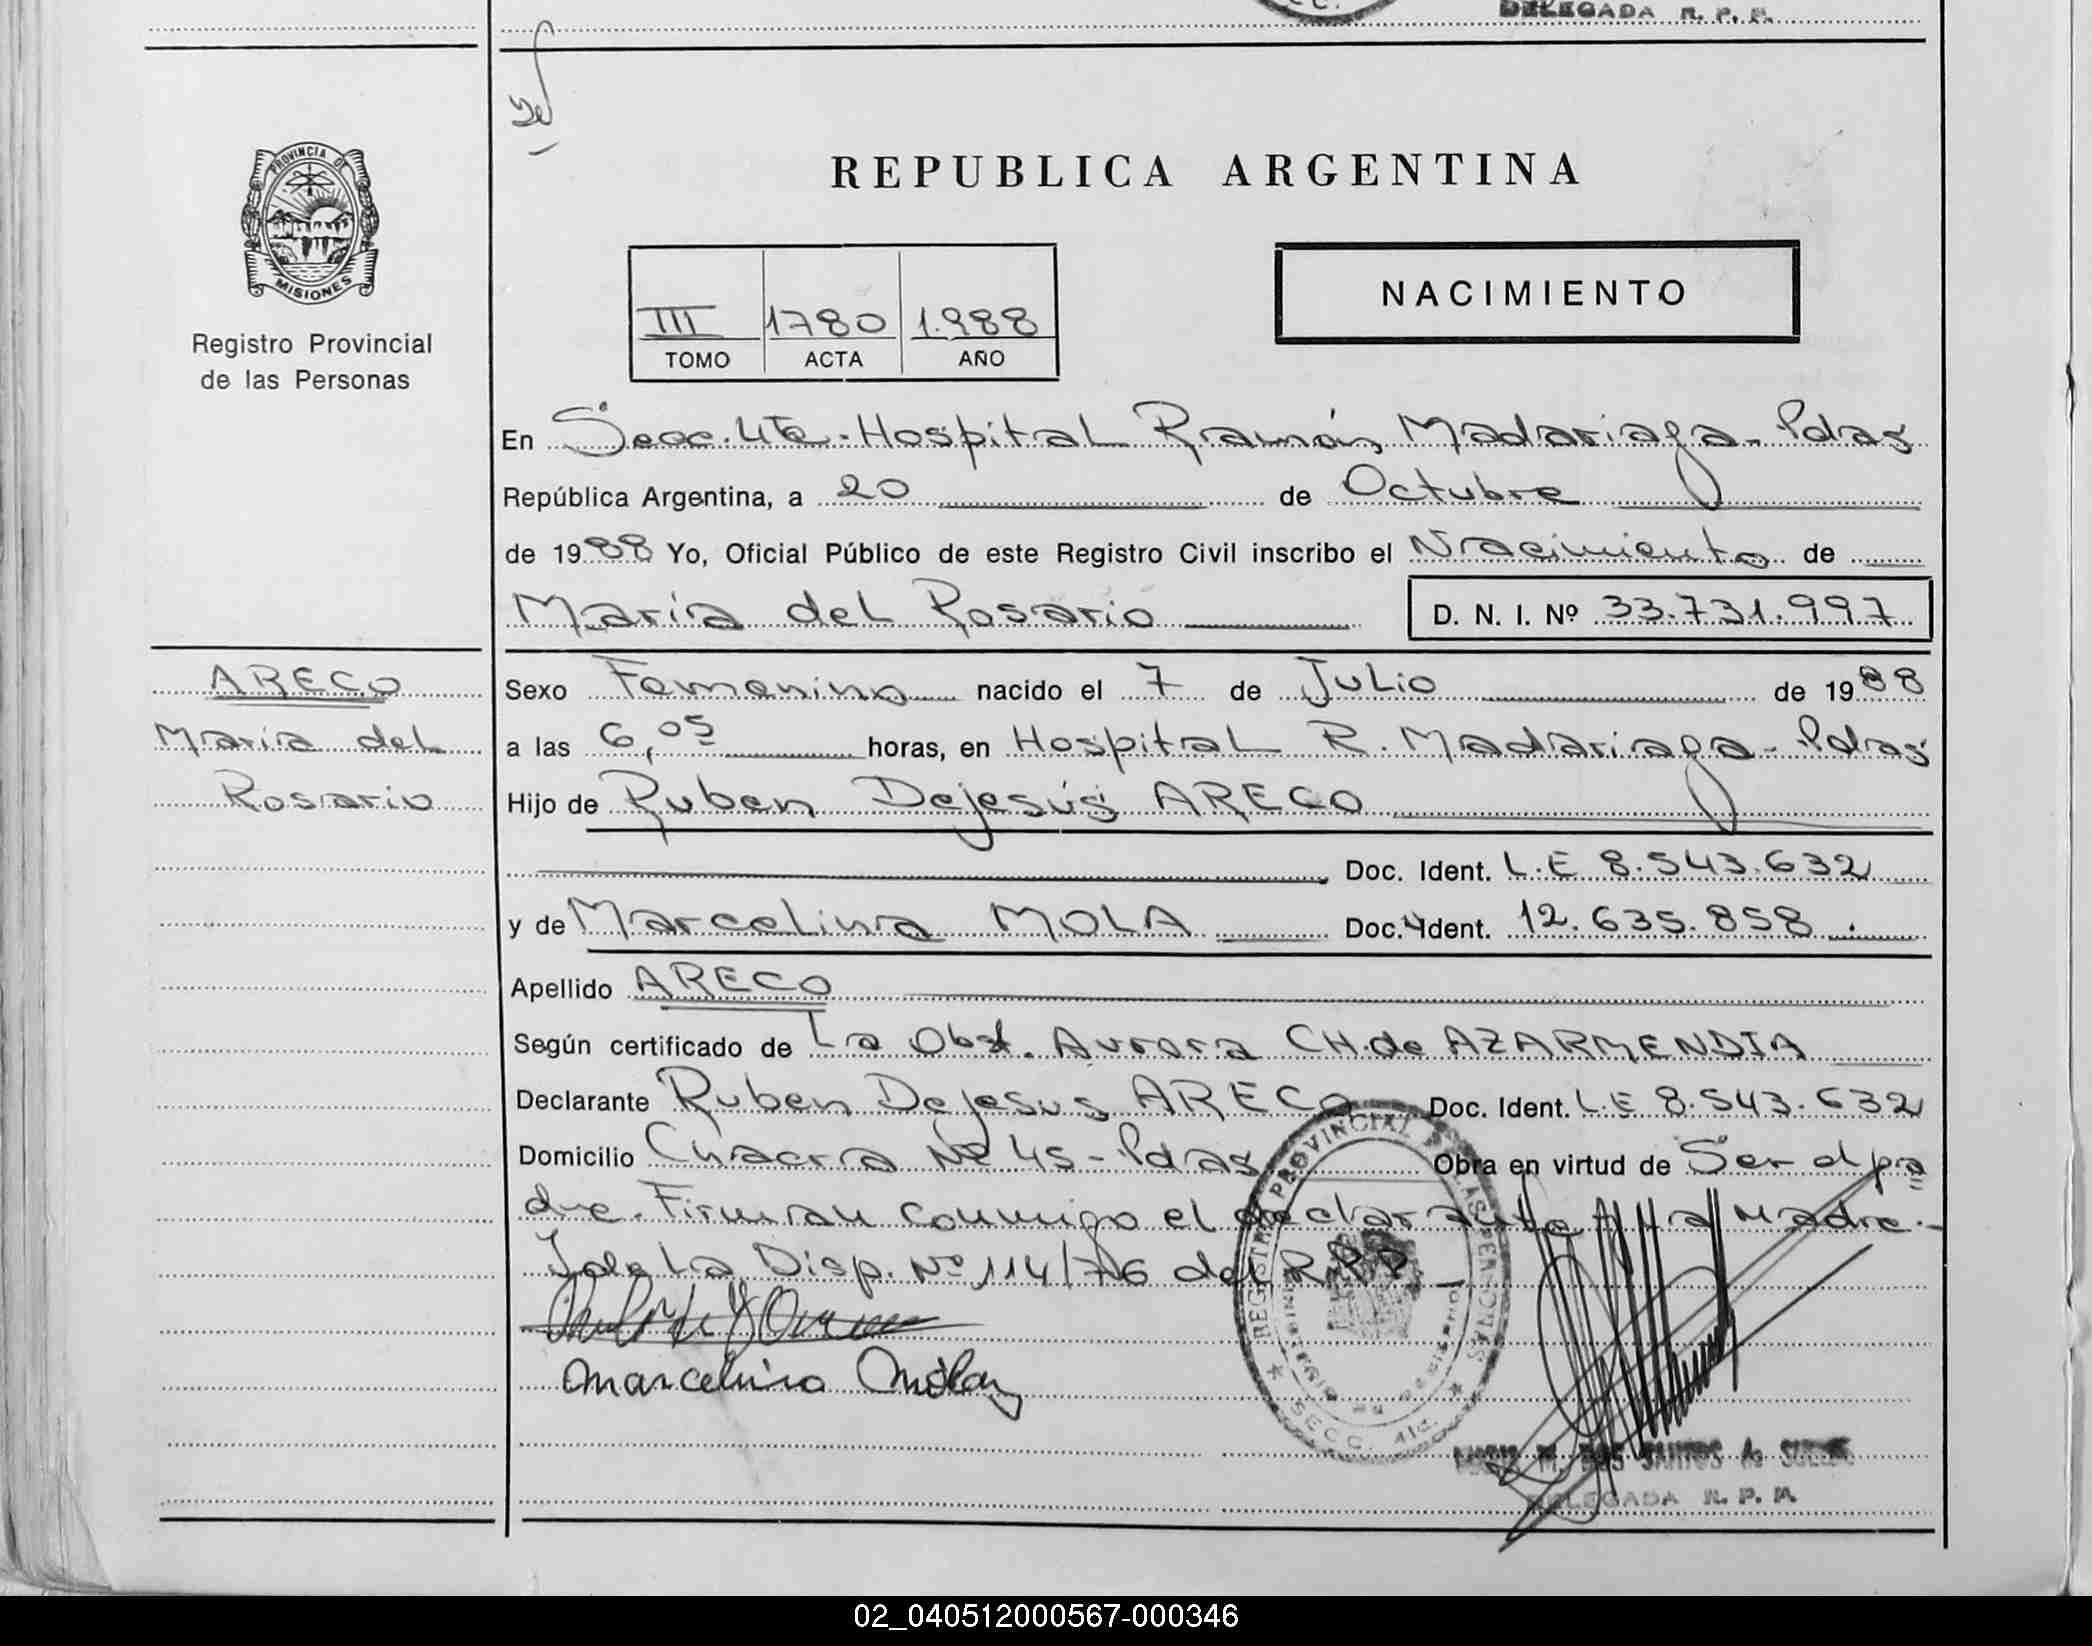 DELEGADA R. P. P.
PROVINCIA DE
MISIONES
Registro Provincial
de las Personas
REPUBLICA ARGENTINA
NACIMIENTO
III 1780 1.988
TOMO ACTA AÑO
En Secc. 4ta - Hospital Ramón Madariaga - Pdas
República Argentina, a 20 de Octubre
de 1988 Yo, Oficial Público de este Registro Civil inscribo el Nacimiento de
María del Rosario D. N. I. Nº 33.731.997
ARECO
María del
Rosario
Sexo Femenino nacido el 7 de Julio de 1988
a las 6,05 horas, en Hospital R. Madariaga - Pdas
Hijo de Ruben Dejesús ARECO
Doc. Ident. L.E 8.543.632
y de Marcelina MOLA Doc. Ident. 12.635.858
Apellido ARECO
Según certificado de La Obst. Aurora CH. de AZARMENDIA
Declarante Ruben Dejesus ARECO Doc. Ident. L.E 8.543.632
Domicilio Chacra Nº 45 - Pdas Obra en virtud de Ser el pa
dre. Firman conmigo el declarante y la Madre.-
Disp. Nº 114/76 del RPP
Marcelina Mola
REGISTRO PROVINCIAL DE LAS PERSONAS
SECC. 4ta.
DELEGADA R. P. P.
02_040512000567-000346